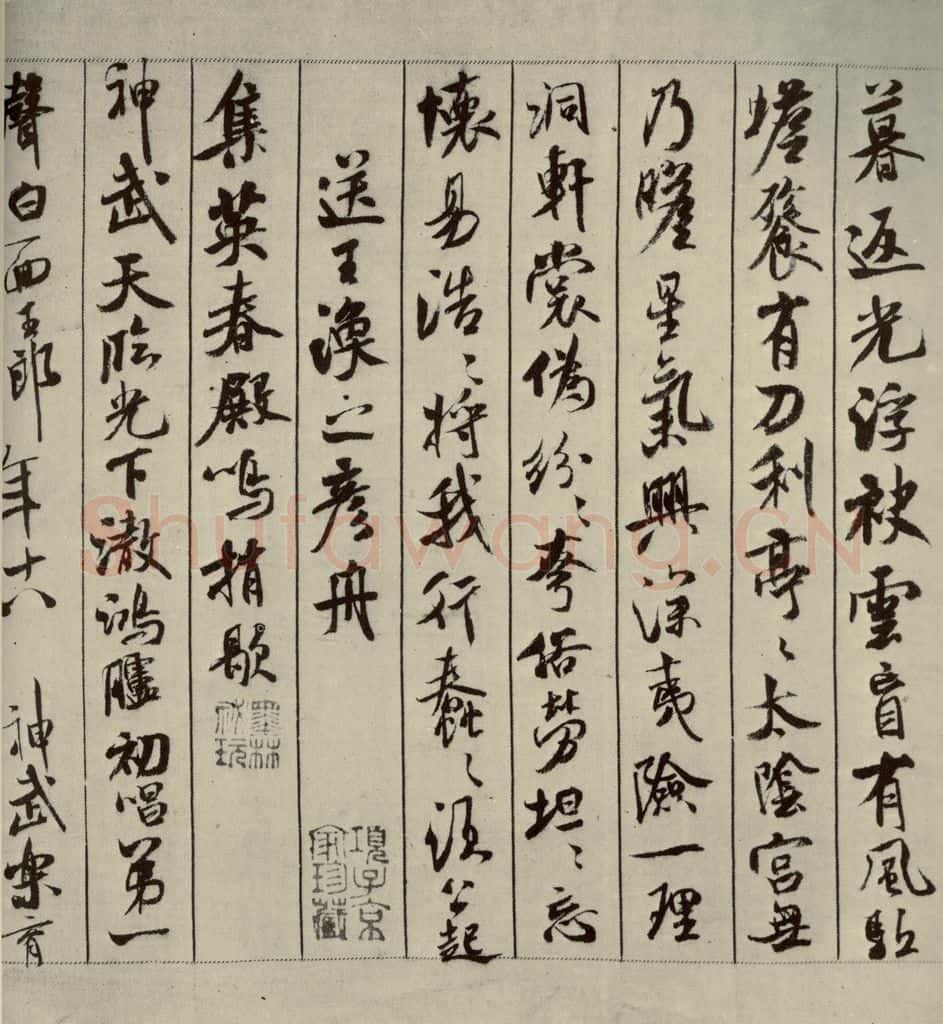 暮返光浮袂雲盲有風駈
蟾餮有刀利亭〻太陰宮無
乃瞻星氣興深夷險一理
洞軒裳偽紛〻夸俗勞坦〻忘
懷易浩〻將我行蠢〻須公起
送王渙之彥舟
項子京家珍藏
集英春殿鳴捎歇
墨林祕玩
神武天臨光下澈鴻臚初唱第一
聲白面玉郎年十八 神武樂育
Shufawang.CN